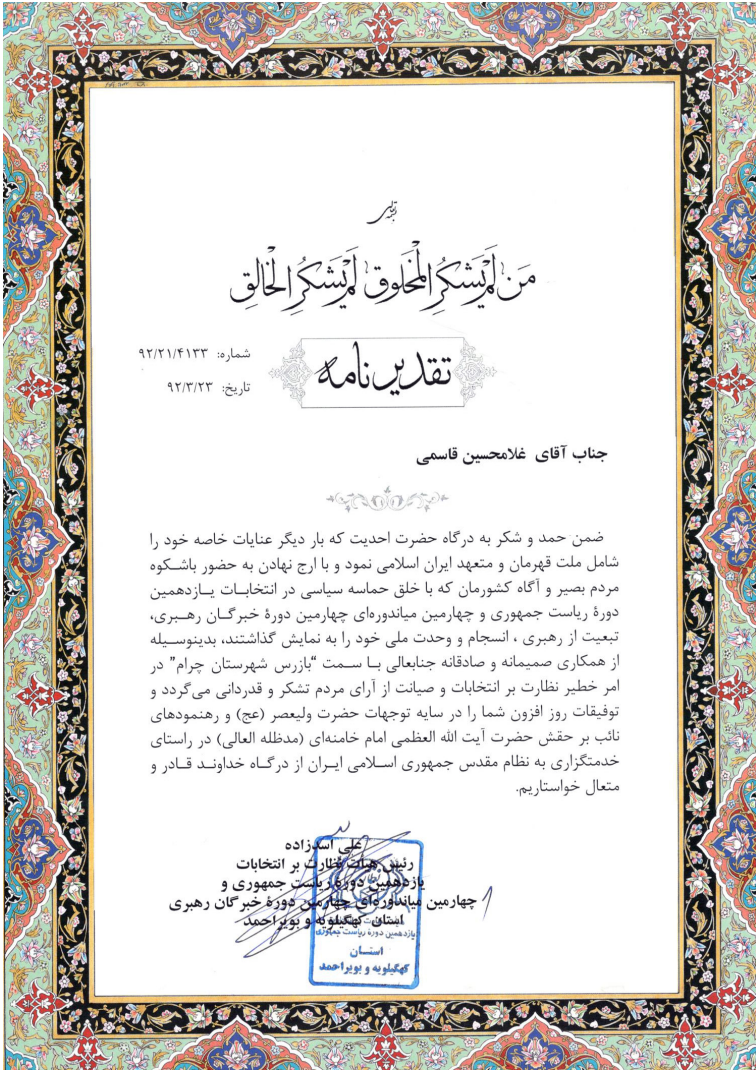 بسمه تعالی
مَن لَم یَشکُرِ المَخلوق لَم یَشکُرِ الخالِق
تقدیرنامه
شماره: ۹۲/۲۱/۴۱۳۳
تاریخ: ۹۲/۳/۲۳
جناب آقای غلامحسین قاسمی
ضمن حمد و شکر به درگاه حضرت احدیت که بار دیگر عنایات خاصه خود را
شامل ملت قهرمان و متعهد ایران اسلامی نمود و با ارج نهادن به حضور باشکوه
مردم بصیر و آگاه کشورمان که با خلق حماسه سیاسی در انتخابات یازدهمین
دورهٔ ریاست جمهوری و چهارمین میاندوره‌ای چهارمین دورهٔ خبرگان رهبری،
تبعیت از رهبری ، انسجام و وحدت ملی خود را به نمایش گذاشتند، بدینوسیله
از همکاری صمیمانه و صادقانه جنابعالی با سمت "بازرس شهرستان چرام" در
امر خطیر نظارت بر انتخابات و صیانت از آرای مردم تشکر و قدردانی می‌گردد و
توفیقات روز افزون شما را در سایه توجهات حضرت ولیعصر (عج) و رهنمودهای
نائب بر حقش حضرت آیت الله العظمی امام خامنه‌ای (مدظله العالی) در راستای
خدمتگزاری به نظام مقدس جمهوری اسلامی ایران از درگاه خداوند قادر و
متعال خواستاریم.
علی اسدزاده
رئیس هیات نظارت بر انتخابات
یازدهمین دورهٔ ریاست جمهوری و
چهارمین میاندوره‌ای چهارمین دورهٔ خبرگان رهبری
استان کهگیلویه و بویراحمد
یازدهمین دوره ریاست جمهوری
استان
کهگیلویه و بویراحمد